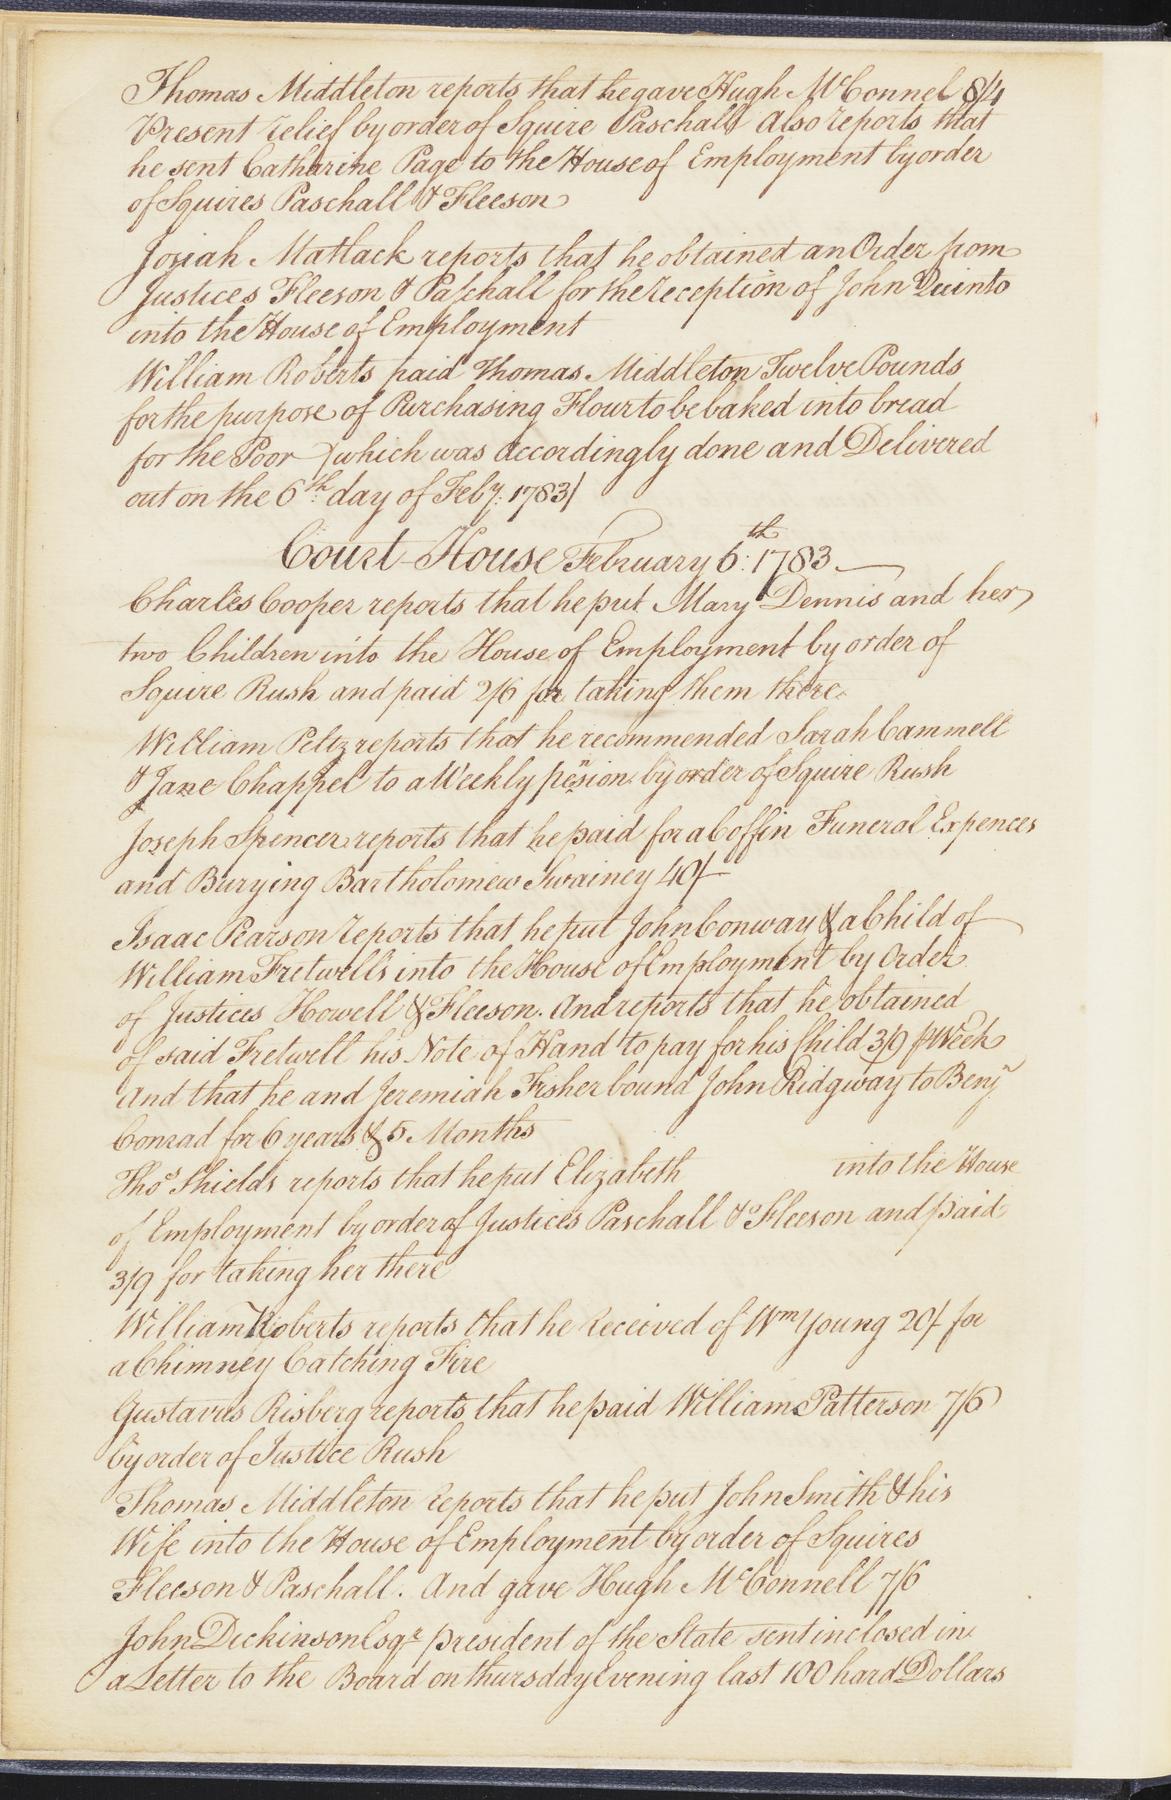 Thomas Middleton reports that he gave Hugh McConnel 8/4
Present relief by order of Squire Paschall Also reports that
he sent Catharine Page to the House of Employment by order
of Squires Paschall & Fleeson
Josiah Matlack reports that he obtained an Order from
Justices Fleeson & Paschall for the reception of John Quinto
into the House of Employment
William Roberts paid Thomas Middleton Twelve Pounds
for the purpose of Purchasing Flour to be baked into bread
for the Poor (which was accordingly done and Delivered
out on the 6th day of Feby: 1783)
Court-House February 6th: 1783
Charles Cooper reports that he put Mary Dennis and her
two Children into the House of Employment by order of
Squire Rush and paid 2/6 for taking them there
William Peltz reports that he recommended Sarah Cammell
& Jane Chappel to a Weekly pēsion by order of Squire Rush
Joseph Spencer reports that he paid for a Coffin Funeral Expences
and Burying Bartholomew Swainey 40/
Isaac Pearson reports that he put John Conway & a Child of
William Fretwells into the House of Employment by Order
of Justices Howell & Fleeson. And reports that he obtained
of said Fretwell his Note of Hand to pay for his Child 3/9 P Week
And that he and Jeremiah Fisher bound John Ridgway to Benj
Conrad for 6 years & 5 Months
Thos Shields reports that he put Elizabeth into the House
of Employment by order of Justices Paschall & Fleeson and paid
3/9 for taking her there
William Roberts reports that he Received of Wm Young 20/ for
a Chimney Catching Fire
Gustavus Risberg reports that he paid William Patterson 7/6
by order of Justice Rush
Thomas Middleton reports that he put John Smith & his
Wife into the House of Employment by order of Squires
Fleeson & Paschall. And gave Hugh McConnell 7/6
John Dickinson Esqr president of the State sent inclosed in
a Letter to the Board on thursday Evening last 100 hard Dollars